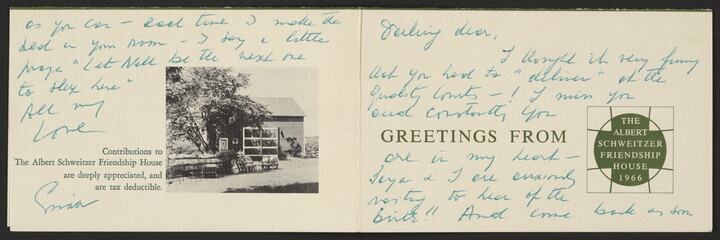 as you can – each time I make the
bed in your room – I say a little
prayer "Let Nell be the next one
to sleep here"
All my
Love
Contributions to
The Albert Schweitzer Friendship House
are deeply appreciated, and
are tax deductible.
Darling dear,
I thought it very funny
that you had to "deliver" at the
Quality Courts – ! I miss you
and constantly you
GREETINGS FROM
THE
ALBERT
SCHWEITZER
FRIENDSHIP
HOUSE
1966
are in my heart –
& I are anxiously
waiting to hear of the
birth!! And come back as soon